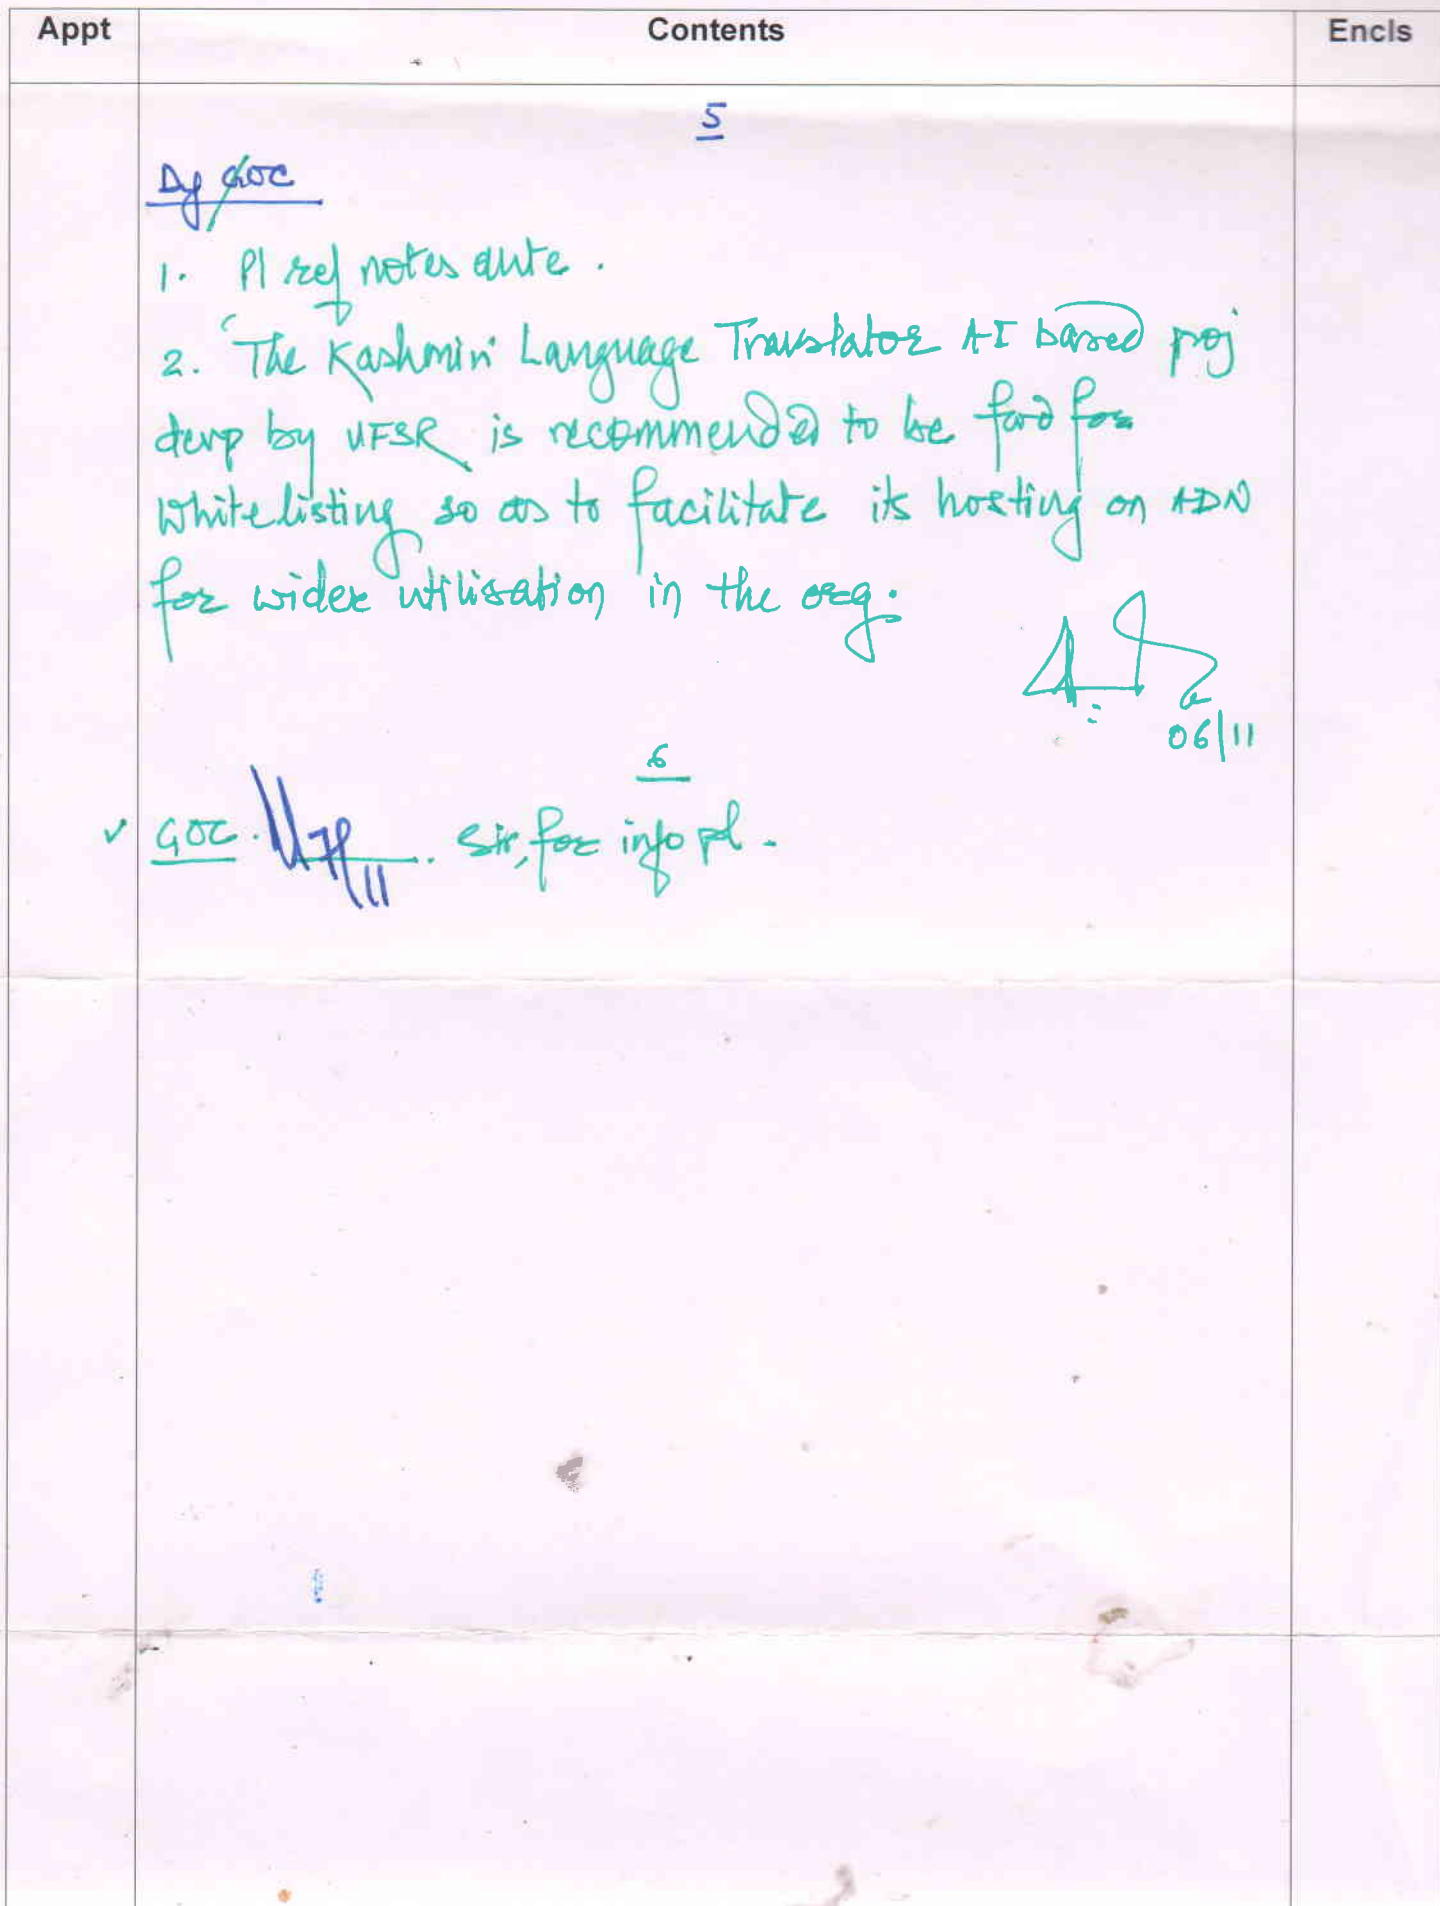 Appt Contents Encls
5
Dy GOC
1. Pl ref notes ante.
2. 'The Kashmiri Language Translator AI based proj
devp by UFSR is recommended to be fwd for
whitelisting so as to facilitate its hosting on ADN
for wider utilisation in the org.
06/11
6
✓ GOC. Sir, for info pl.